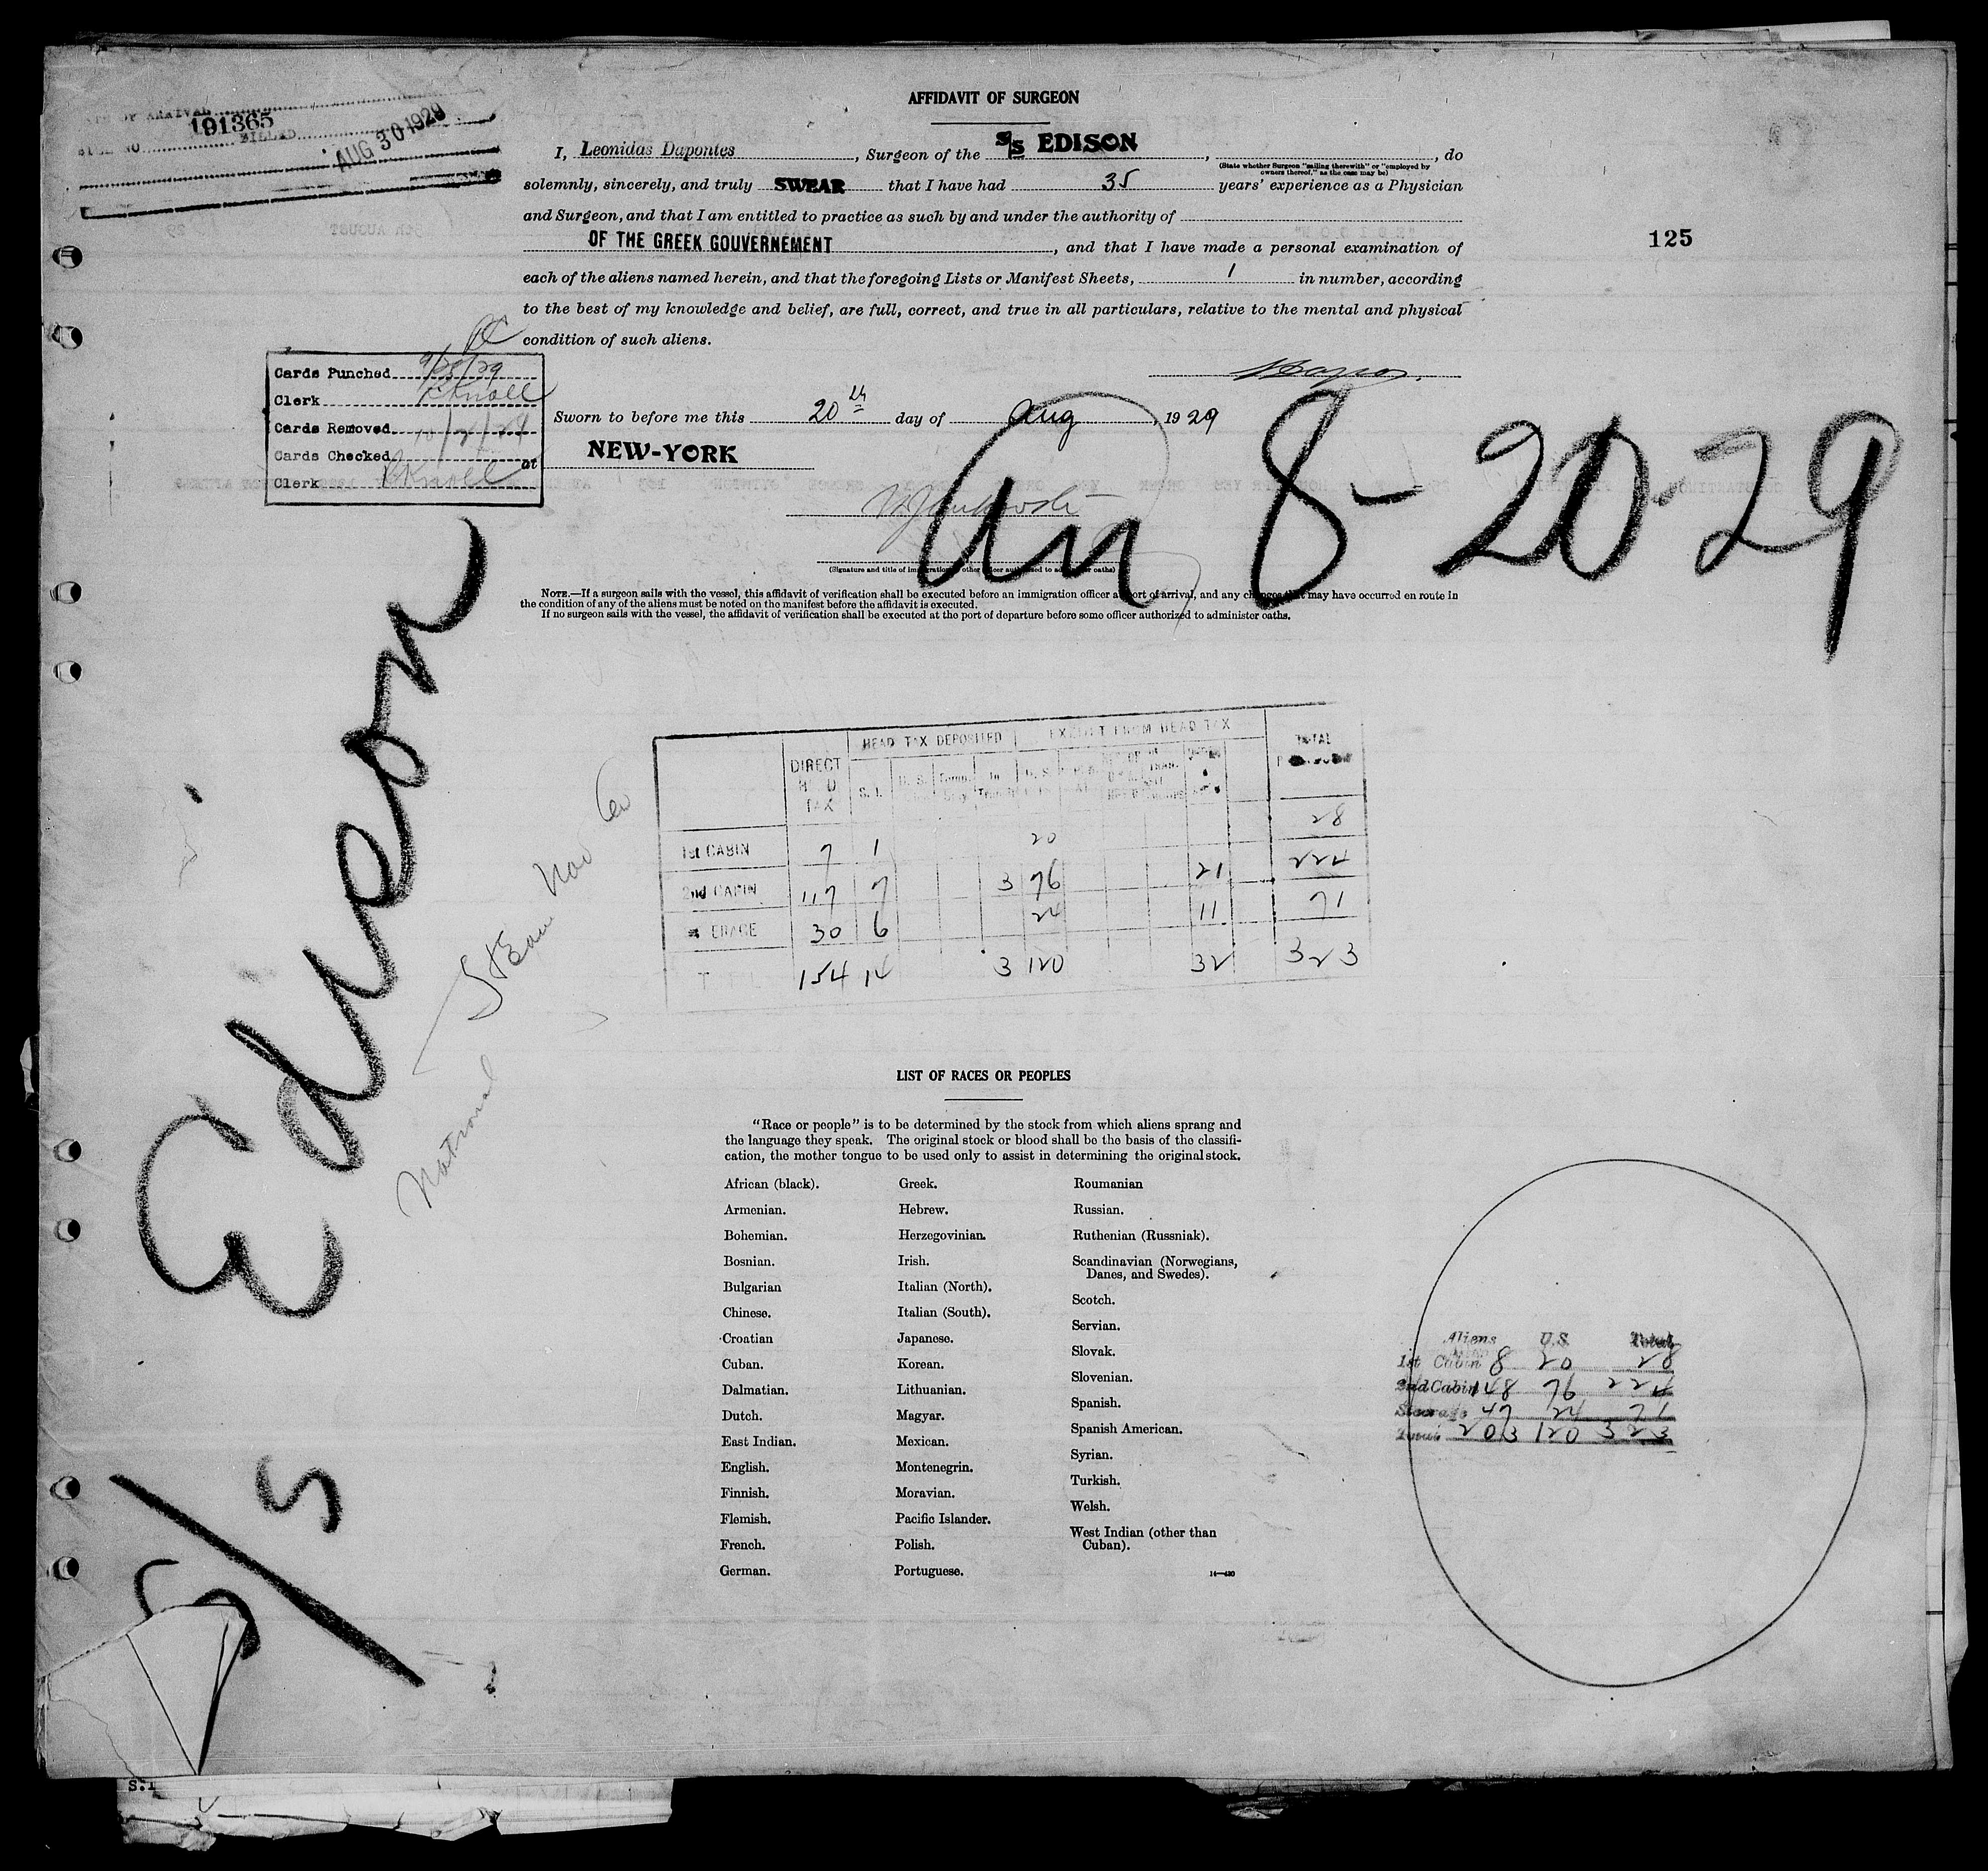 AFFIDAVIT OF SURGEON
191365
BILLED
AUG 30 1929
I, Leonidas Dapontes, Surgeon of the S/S EDISON, , do
(State whether Surgeon "sailing therewith" or "employed by
owners thereof," as the case may be)
solemnly, sincerely, and truly SWEAR that I have had 35 years' experience as a Physician
and Surgeon, and that I am entitled to practice as such by and under the authority of
OF THE GREEK GOUVERNEMENT, and that I have made a personal examination of
125
each of the aliens named herein, and that the foregoing Lists or Manifest Sheets, 1 in number, according
to the best of my knowledge and belief, are full, correct, and true in all particulars, relative to the mental and physical
condition of such aliens.
Cards Punched 9/28/29
Clerk Knoll
Cards Removed 10/2/29
Cards Checked
Clerk Knoll
Sworn to before me this 20th day of Aug, 1929
at NEW-YORK
8-20-29
(Signature and title of immigration or other officer authorized to administer oaths)
NOTE.—If a surgeon sails with the vessel, this affidavit of verification shall be executed before an immigration officer at port of arrival, and any changes that may have occurred en route in
the condition of any of the aliens must be noted on the manifest before the affidavit is executed.
If no surgeon sails with the vessel, the affidavit of verification shall be executed at the port of departure before some officer authorized to administer oaths.
S/S Edison
National
HEAD TAX DEPOSITED EXEMPT FROM HEAD TAX TOTAL
DIRECT HEAD TAX S. I.
1st CABIN 7 1 20 28
2nd CABIN 117 7 3 76 21 224
30 6 24 11 71
154 14 3 120 32 323
LIST OF RACES OR PEOPLES
"Race or people" is to be determined by the stock from which aliens sprang and
the language they speak. The original stock or blood shall be the basis of the classifi-
cation, the mother tongue to be used only to assist in determining the original stock.
African (black).
Armenian.
Bohemian.
Bosnian.
Bulgarian
Chinese.
Croatian
Cuban.
Dalmatian.
Dutch.
East Indian.
English.
Finnish.
Flemish.
French.
German.
Greek.
Hebrew.
Herzegovinian.
Irish.
Italian (North).
Italian (South).
Japanese.
Korean.
Lithuanian.
Magyar.
Mexican.
Montenegrin.
Moravian.
Pacific Islander.
Polish.
Portuguese.
Roumanian
Russian.
Ruthenian (Russniak).
Scandinavian (Norwegians,
Danes, and Swedes).
Scotch.
Servian.
Slovak.
Slovenian.
Spanish.
Spanish American.
Syrian.
Turkish.
Welsh.
West Indian (other than
Cuban).
14—430
Aliens U.S Total
1st Cabin 8 20 28
2nd Cabin 148 76 224
Steerage 47 24 71
Total 203 120 323
S.I